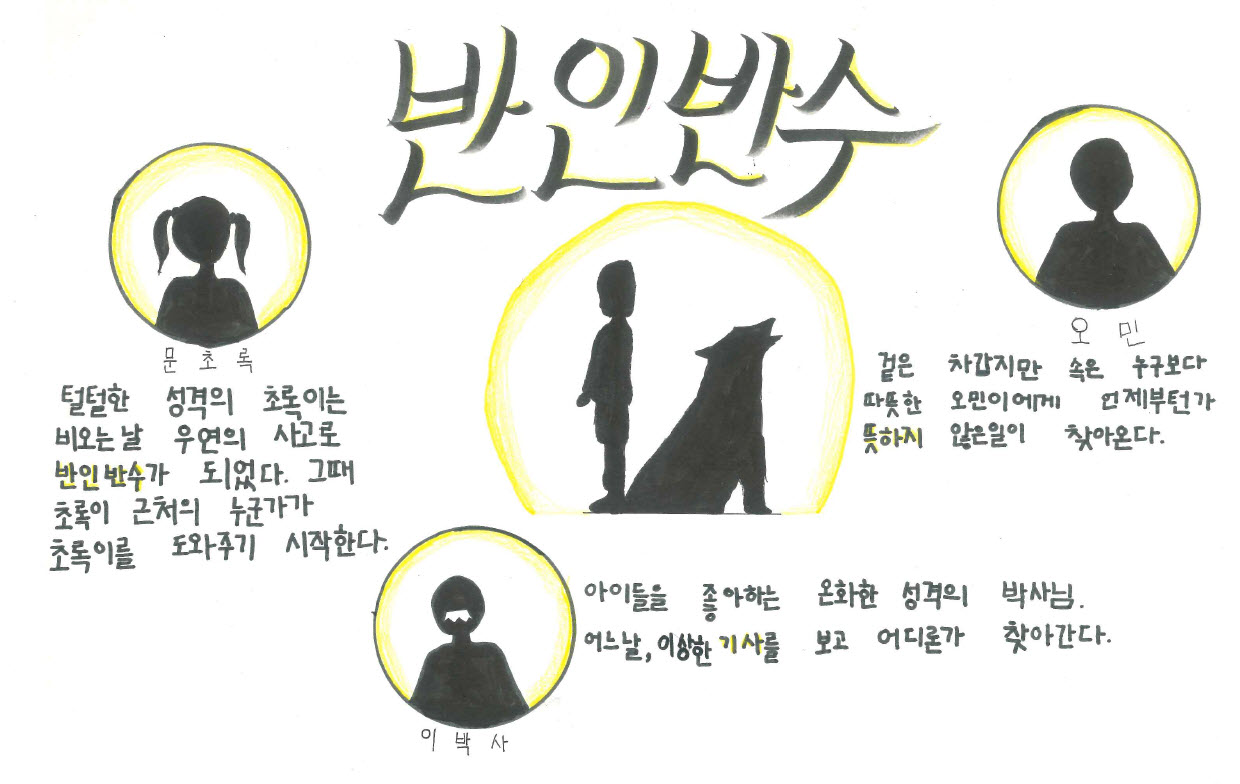 반인반수
문초록
털털한 성격의 초록이는
비오는날 우연의 사고로
반인반수가 되었다. 그때
초록이 근처의 누군가가
초록이를 도와주기 시작한다.
오민
겉은 차갑지만 속은 누구보다
따뜻한 오민이에게 언제부턴가
뜻하지 않은일이 찾아온다.
아이들을 좋아하는 온화한 성격의 박사님.
어느날, 이상한 기사를 보고 어디론가 찾아간다.
이박사